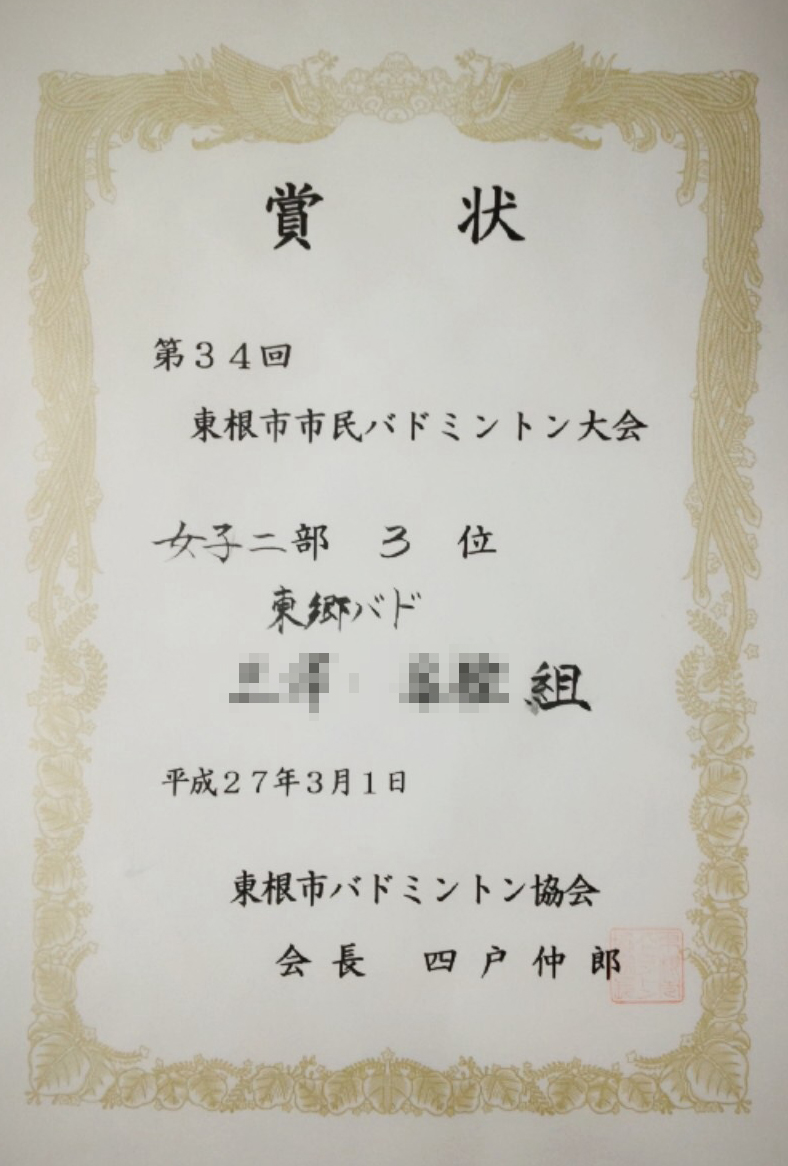 賞状
第３４回
東根市市民バドミントン大会
女子二部 ３ 位
東郷バド
組
平成２７年３月１日
東根市バドミントン協会
会長 四戸仲郎